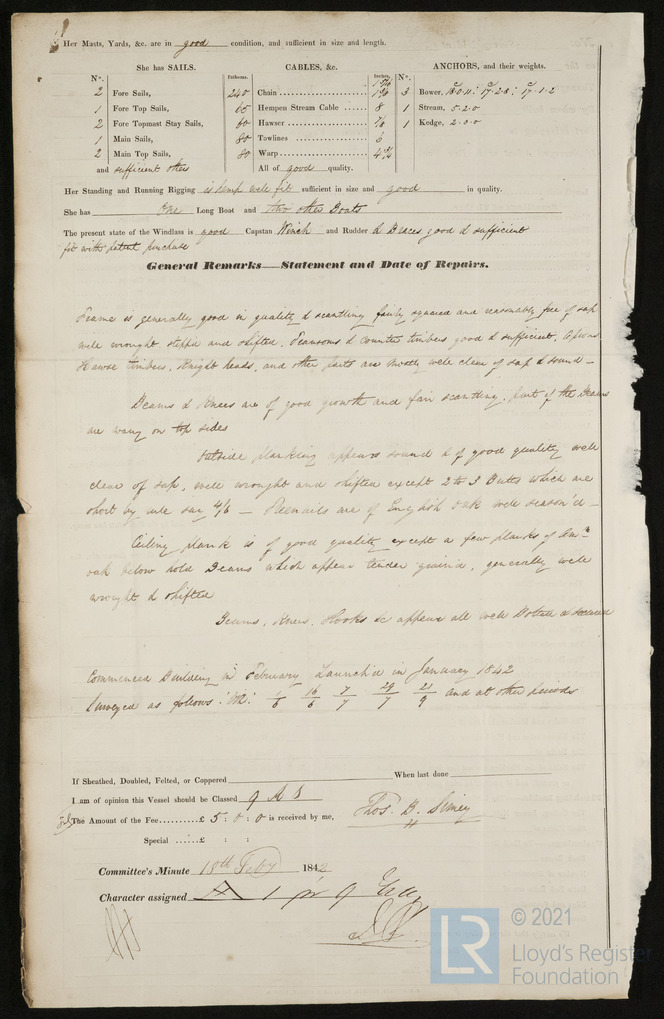 Her Masts, Yards, &c. are in good condition, and sufficient in size and length.
She has SAILS.
CABLES, &c.
ANCHORS, and their weights.
N°.
Fathoms.
Inches.
N°.
2 Fore Sails, 240 Chain 3 Bower,
1 Fore Top Sails, 65 Hempen Stream Cable 8 1 Stream, 5-2-0
2 Fore Topmast Stay Sails, 60 Hawser 1 Kedge, 2-0-0
1 Main Sails, 80 Towlines 6
2 Main Top Sails, 80 Warp
and sufficient others All of good quality.
Her Standing and Running Rigging is hemp well fit sufficient in size and good in quality.
She has One Long Boat and two other Boats
The present state of the Windlass is good Capstan Winch and Rudder & Braces good & sufficient
fit with patent purchase
General Remarks—Statement and Date of Repairs.
Frame is generally good in quality & scantling fairly squared and reasonably free of sap
well wrought and shifted. Transoms & Counter timbers good & sufficient. Aprons
Hawse timbers, Knight heads, and other parts are mostly well clear of sap & sound –
Beams & Knees are of good growth and fair scantling, part of the Beams
are wany on top sides
Outside planking appears sound & of good quality well
clear of sap, well wrought and shifted except 2 to 3 Butts which are
short by rule say 4/6 – Treenails are of English oak well season'd –
Ceiling plank is of good quality except a few planks of Amn
oak below hold Beams which appear tender grain'd, generally well
wrought & shifted
Beams, Knees, Hooks &c appear all well Bolted & secured
Commenced Building in February Launch'd in January 1842
Surveyed as follows 16/6 7/7 29/7 21/9 and at other periods
If Sheathed, Doubled, Felted, or Coppered When last done
I am of opinion this Vessel should be Classed 9 A 1
The Amount of the Fee £ 5 : 0 : 0 is received by me,
Thos. B. Simey
Special £ : :
Committee's Minute 18th Feby 1842
Character assigned A 1 for 9
LR
© 2021
Lloyd's Register
Foundation